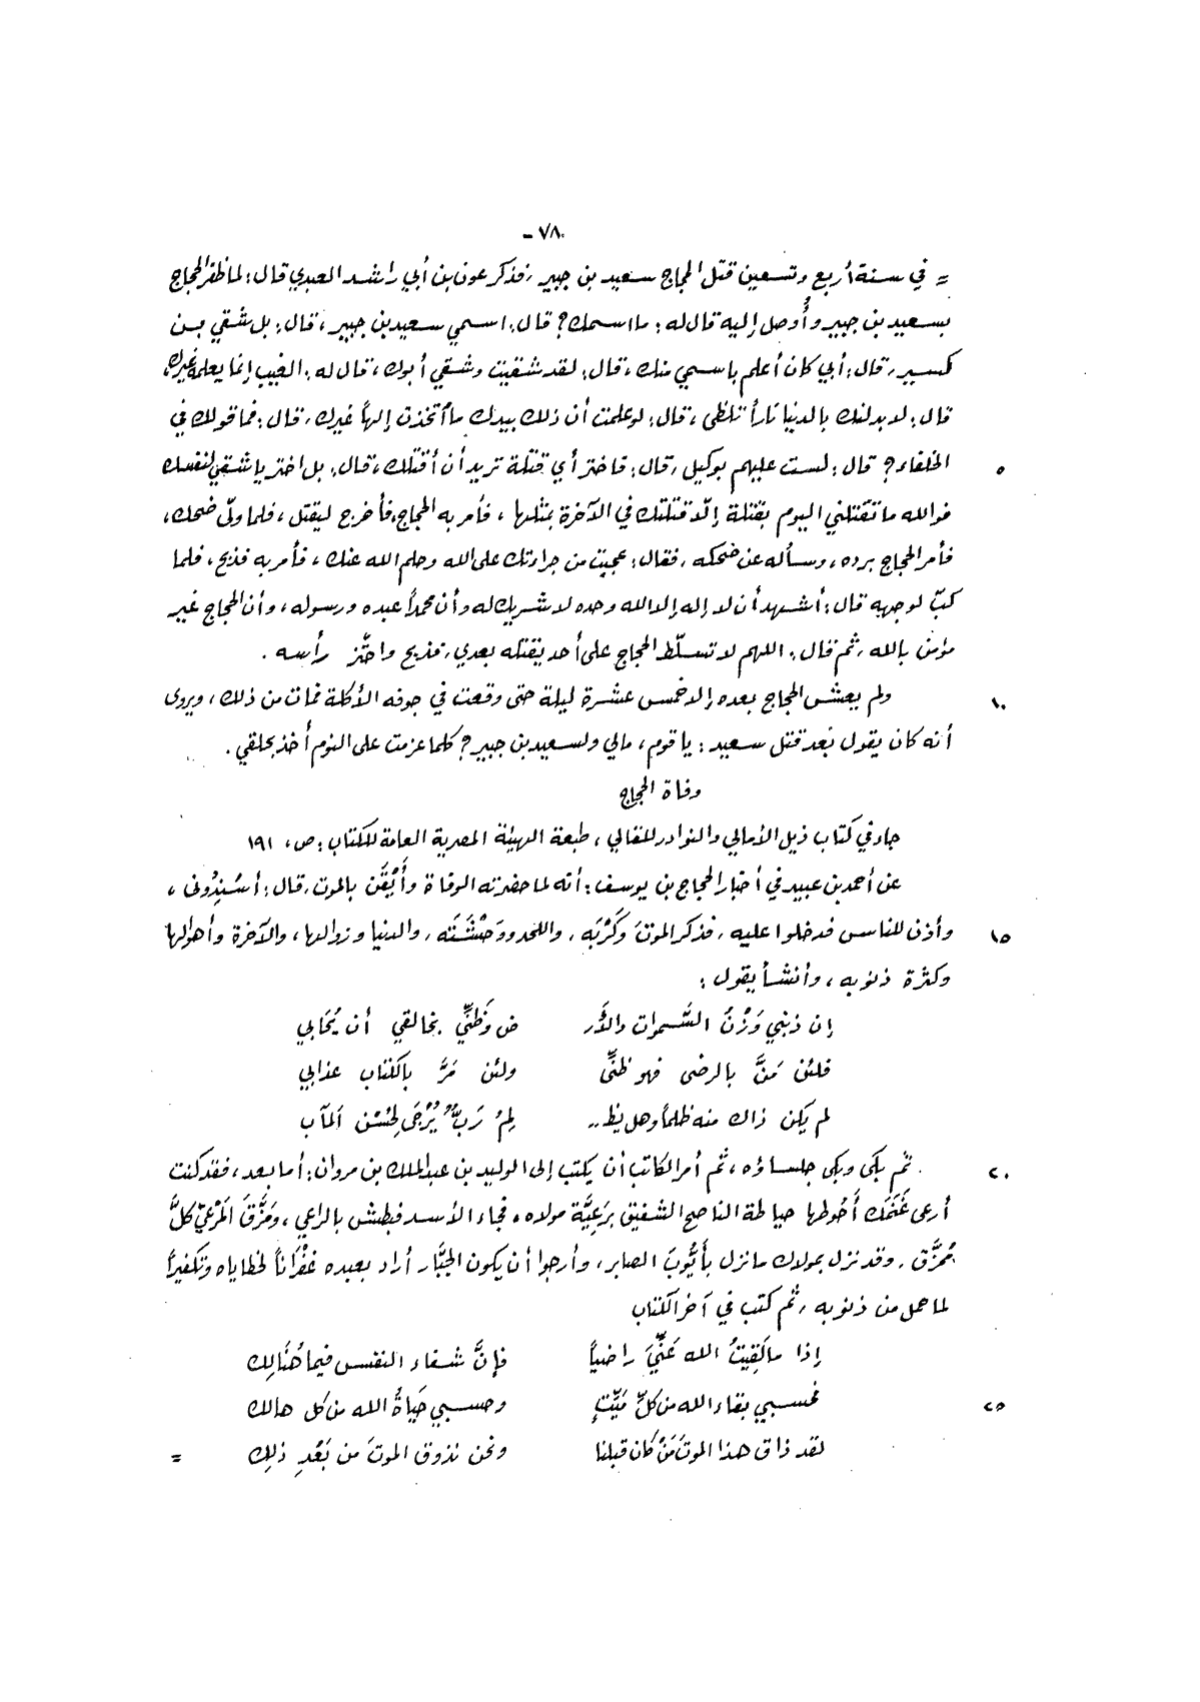 - ٧٨٠
= في سنة أربع وتسعين قتل الحجاج سعيد بن جبير، فذكر عون بن أبي راشد العبدي قال: لما ظفر الحجاج
بسعيد بن جبير وأُوصل إليه قال له: ما اسمك؟ قال: اسمي سعيد بن جبير، قال: بل شقي بن
كسير، قال: أبي كان أعلم باسمي منك، قال: لقد شقيت وشقي أبوك، قال له: الغيب إنما يعلمه غيرك،
قال: لأبدلنك بالدنيا ناراً تلظى، قال: لو علمت أن ذلك بيدك ما اتخذت إلهاً غيرك، قال: فما قولك في
٥ الخلفاء؟ قال: لست عليهم بوكيل، قال: فاختر أي قتلة تريد أن أقتلك، قال: بل اختر يا شقي لنفسك
فوالله ما تقتلني اليوم بقتلة إلّا قتلتك في الآخرة بمثلها، فأمر به الحجاج فأخرج ليقتل، فلما ولّى ضحك،
فأمر الحجاج برده، وسأله عن ضحكه، فقال: عجبت من جراءتك على الله وحلم الله عنك، فأمر به فذبح، فلما
كبّ لوجهه قال: أشهد أن لا إله إلا الله وحده لا شريك له وأن محمداً عبده ورسوله، وأن الحجاج غير
مؤمن بالله، ثم قال: اللهم لا تسلّط الحجاج على أحد يقتله بعدي، فذبح واحتّز رأسه.
١٠ ولم يعش الحجاج بعده إلا خمس عشرة ليلة حتى وقعت في جوفه الأكلة فمات من ذلك، ويروى
أنه كان يقول بَعد قتل سعيد: يا قوم، مالي ولسعيد بن جبير؟ كلما عزمت على النوم أخذ بحلقي.
وفاة الحجاج
جاء في كتاب ذيل الأمالي والنوادر للقالي، طبعة الهيئة المصرية العامة للكتاب: ص، ١٩١
عن أحمد بن عبيد في أخبار الحجاج بن يوسف: أنه لما حضرته الوفاة وأَيْقَن بالموت، قال: أسْنِدُونى،
١٥ وأذن للناس فدخلوا عليه، فذكر الموتَ وكَرْبَه، واللحد ووَحْشَتَه، والدنيا وزوالها، والآخرة وأهوالها
وكثرة ذنوبه، وأنشأ يقول:
إن ذنبي وَزْنُ السَّموات والأَر ض وَظَنِّي بخالقي أن يُحَابي
فلئن مَنَّ بالرضى فهو ظنِّى ولئن مَرَّ بالكتاب عذابي
لم يكن ذاك منه ظلماً وهل يظ.. لِمُ رَبٌّ يُرْجَى لِحُسْن المآب
٢٠ ثم بكى وبكى جلساؤه، ثم أمر الكاتب أن يكتب إلى الوليد بن عبد الملك بن مروان: أما بعد، فقد كنت
أرعى غَنَمَك أحُوطها حياطة الناصح الشفيق برَعِيَّة مولاه، فجاء الأسد فبطش بالراعي، ومَزَّقَ المَرْعِيَّ كلَّ
مُمَزَّق، وقد نزل بمولاك ما نزل بأَيُّوبَ الصابر، وأرجوا أن يكون الجبَّار أراد بعبده غُفْرَاناً لخطاياه وتكفيراً
لما حمل من ذنوبه، ثم كتب في آخر الكتاب
إذا ما لَقِيتُ الله عَنِّيَ راضياً فإنَّ شفاء النفس فيما هُنَالِك
٢٥ فحسبي بقاء الله من كلِّ مَيِّتٍ وحسبي حَياةُ الله من كل هالك
لقد ذاق هذا الموتَ مَنْ كان قبلنا ونحن نذوق الموتَ من بَعْدِ ذلِك =